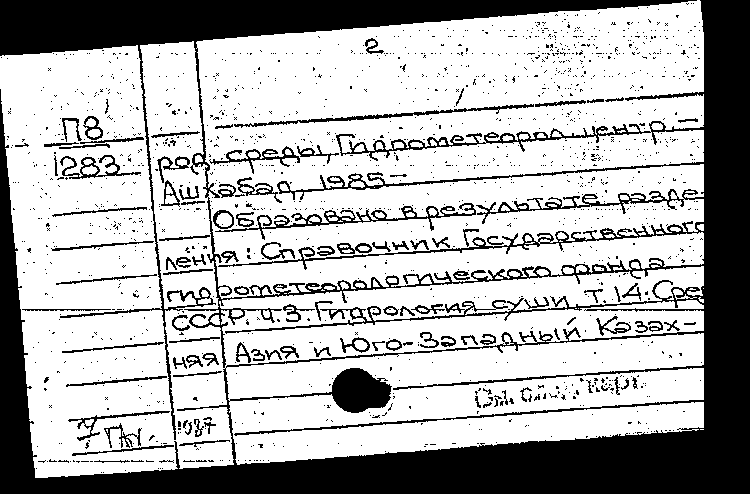 2
П8
1283
род. среды, Гидрометеорол. центр. —
Ашхабад, 1985 —
Образовано в результате разде-
ления: Справочник Государственного
гидрометеорологического фонда
СССР. Ч.3. Гидрология суши. Т. 14. Сред
няя Азия и Юго-Западный Казах-
См. след. карт.
1987